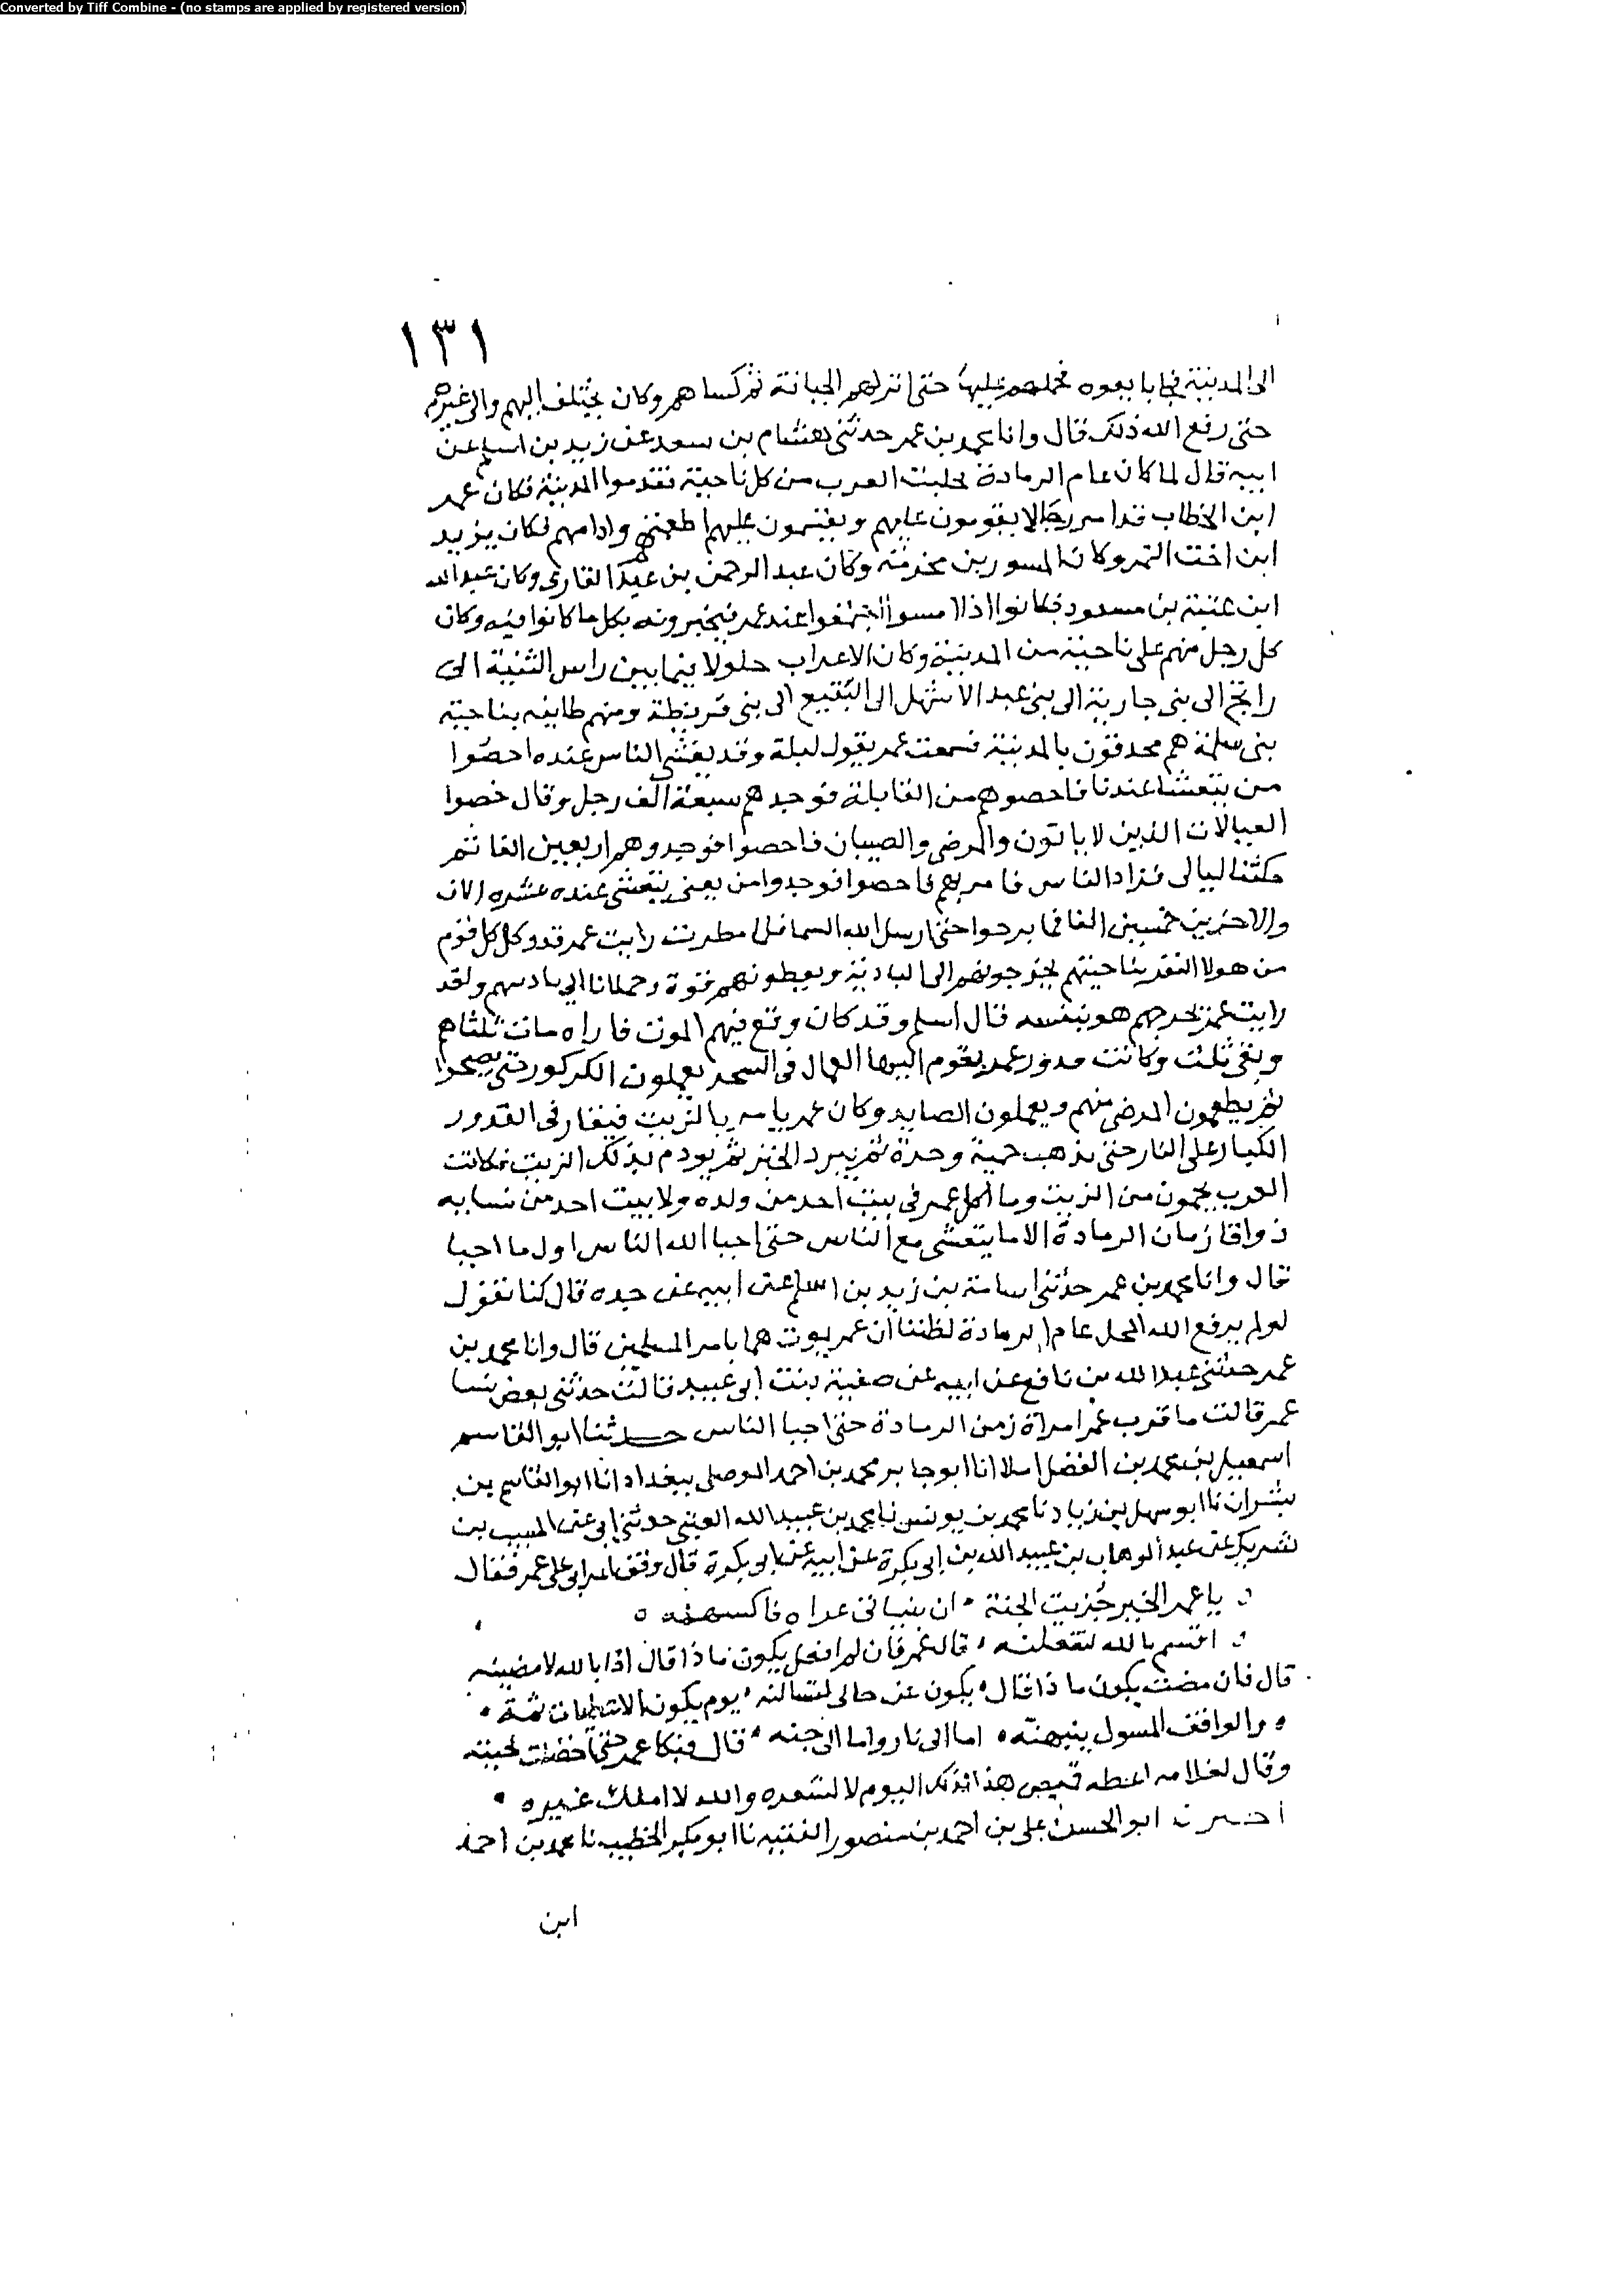 Converted by Tiff Combine - (no stamps are applied by registered version)
١٣١
الى المدينة فجا بابعره فحملهم عليها حتى انزلهم الجبانة ثم كساهم وكان يختلف اليهم والى غيرهم
حتى رفع الله ذلك قال وانا محمد بن عمر حدثنى هشام بن سعد عن زيد بن اسلم عن
ابيه قال لما كان عام الرمادة تجلبت العرب من كل ناحية فقدموا المدينة فكان عمر
ابن الخطاب قد امر رجالا يقومون عليهم ويقسمون عليهم اطعمتهم وادامهم فكان يزيد
ابن اخت النمر وكان المسور بن مخرمة وكان عبد الرحمن بن عبد القارى وكان عبد الله
ابن عتبة بن مسعود فكانوا اذا امسوا اجتمعوا عند عمر فيخبرونه بكل ما كانوا فيه وكان
كل رجل منهم على ناحية من المدينة وكان الاعراب حلولا فيما بين راس الثنية الى
راتج الى بنى حارثة الى بنى عبد الاشهل الى البقيع الى بنى قريظة ومنهم طايفه بناحية
بنى سلمة هم محدقون بالمدينة فسمعت عمر يقول ليلة وقد تعشى الناس عنده احصوا
من يتعشا عندنا فاحصوهم من القابلة فوجدهم سبعة الف رجل وقال احصوا
العيالات الذين لا ياتون والمرضى والصبيان فاحصوا فوجدوهم اربعين الفا ثم
مكثنا ليالى فزاد الناس فامر بهم فاحصوا فوجدوا من يعنى يتعشى عنده عشره الاف
والاخرين خمسين الفا فما برحوا حتى ارسل الله السما فلما مطرت رايت عمر قد وكل كل قوم
من هولا النفر بناحيتهم يخرجونهم الى البادية ويعطونهم قوة وحملانا الى باديتهم ولقد
رايت عمر يخرجهم هو بنفسه قال اسلم وقد كان وقع فيهم الموت فاراه مات ثلثاهم
وبقى ثلث وكانت قدور عمر يقوم اليها العمال فى السحر يعملون الكركور حتى يصبحوا
ثم يطعمون المرضى منهم ويعملون العصايد وكان عمر يامر بالزيت فيفار فى القدور
الكبار على النار حتى يذهب حميه وحره ثم يثرد الخبز ثم يودم بذلك الزيت فكانت
العرب يحمون من الزيت وما اكل عمر فى بيت احد من ولده ولا بيت احد من نسايه
ذواقا زمان الرمادة الا ما يتعشى مع الناس حتى احيا الله الناس اول ما احيا
قال وانا محمد بن عمر حدثنى اسامة بن زيد بن اسلم عن ابيه عن جده قال كنا نقول
لو لم يرفع الله المحل عام الرمادة لظننا ان عمر يموت هما بامر المسلمين قال وانا محمد بن
عمر حدثنى عبد الله بن نافع عن ابيه عن صفية بنت ابى عبيد قالت حدثنى بعض نسا
عمر قالت ما قرب عمر امراة زمن الرمادة حتى احيا الناس حدثنا ابو القاسم
اسمعيل بن محمد بن الفضل املا انا ابو جابر محمد بن احمد الموصلى ببغداد انا ابو القاسم بن
بشران نا ابو سهل بن زياد نا محمد بن يونس نا محمد بن عبيد الله العتبى حدثنى ابى عن المسيب بن
شريك عن عبد الوهاب بن عبيد الله بن ابى بكرة عن ابيه عن ابى بكرة قال وقف اعرابى على عمر فقال
يا عمر الخير جزيت الجنة ان بنياتى عراه فاكسهنه
اقسم بالله لتفعلنه قال عمر فان لم افعل يكون ماذا قال اذا بالله لامضينه
قال فان مضيت يكون ماذا قال يكون عن حالى لتسالنه يوم يكون الاعطيات ثمة
والواقف المسول بينهنه اما الى نار واما الى جنه قال فبكا عمر حتى اخضلت لحيته
وقال لغلامه اعطه قميصى هذا لذلك اليوم لا لشعره والله لا املك غيره
اخبرنا ابو الحسن على بن احمد بن منصور الفقيه نا ابو بكر الخطيب نا محمد بن احمد
ابن